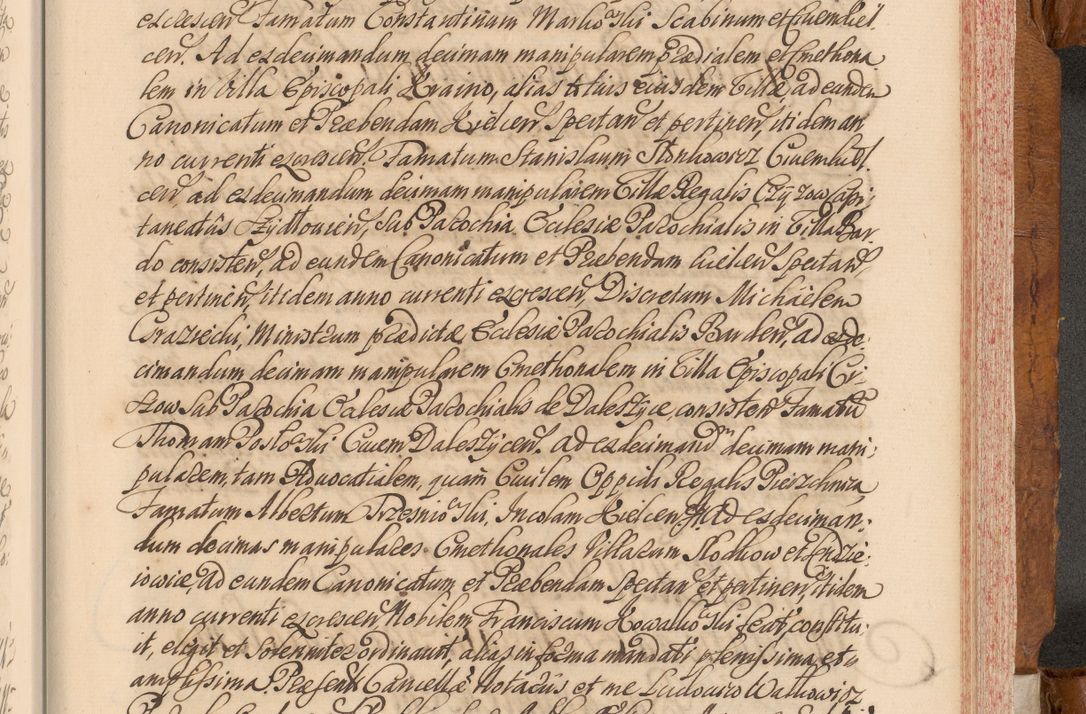 excrescen Famatum Constantinum Scabinum et Civem
cen. Ad exdecimandum decimam manipularem prædialem et Cmethona
lem in Villa Episcopali Kraino, alias eiusdem Villæ, ad eundem
Canonicatum et Præbendam Kielcen Spectan et pertinen, itidem an
no currenti excrescen. Famatum Stanislaum Civem
cen, ad exdecimandum decimam manipularem Villæ Regalis Capi:
taneatûs Szydlovien, sub Parochia Ecclesiæ Parochialis in Villa Bar
do consisten, ad eundem Canonicatum et Præbendam Kielcen Spectan
et pertinen, itidem anno currenti excrescen, Discretum Michäelem
Ministrum prædictæ Ecclesiæ Parochialis Barden, ad exde
cimandum decimam manipularem Cmethonalem in Villa Episcopali Ci:
sow sub Parochia Ecclesiæ Parochialis de Daleszyce, consisten Famatum
Thomam Civem Daleszycen. ad exdecimandm decimam mani:
pularem, tam Advocatialem, quàm Civilem Oppidi Regalis Pierzchnica,
Famatum Albertum Incolam Kielcen, Ad exdeciman:
dum decimas manipulares Cmethonales Villarum et
ad eundem Canonicatum et Præbendam Spectan et pertinen, itidem
anno currenti excrescen Nobilem Franciscum Kowalio Ski fecit, constitu:
it, elegit et Solenniter ordinavit, alias in forma mandati plenissima, et
amplissima. Præsen Cancellæ Notarius et me Ludovico Walkowicz